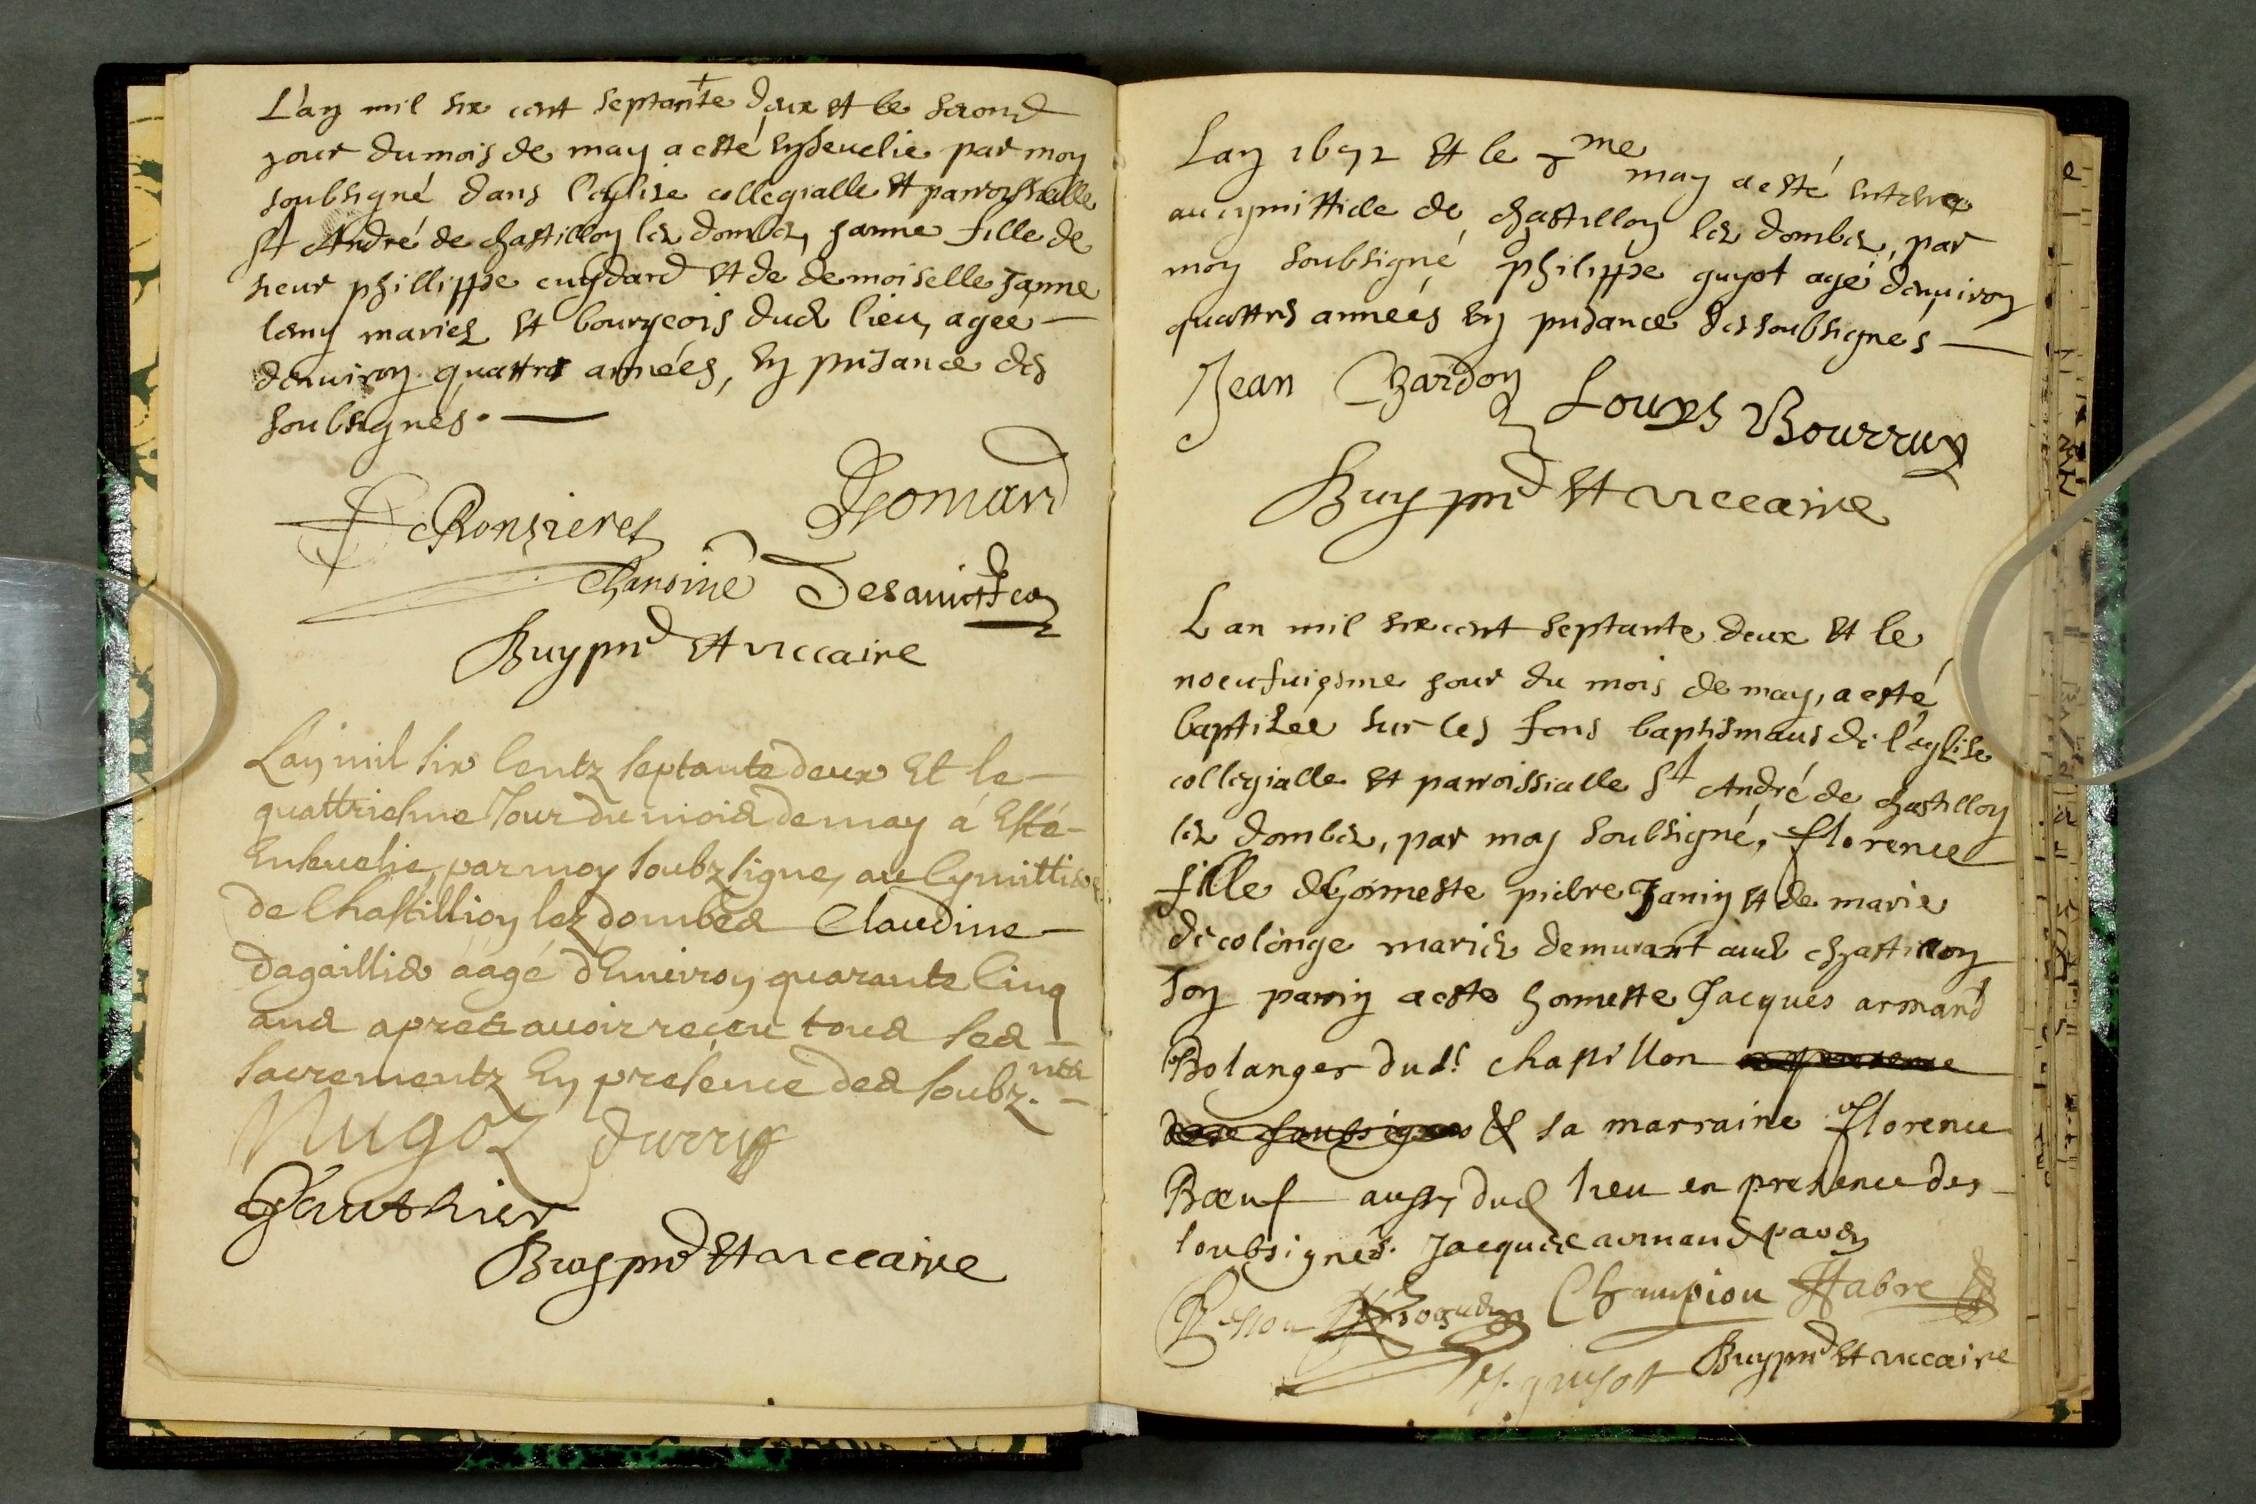 L'an mil six cent septante deux et le second
jour du mois de may a esté ensevelie par moy
soubsigné dans l'eglise collegialle et parroissialle
St André de chastillon lez dombes, janne fille de
sieur phillippe cuysdard et de demoiselle Janne
mariez et bourgeois dud lieu, agee
denviron quattres années, en pnsance des
soubsignés.
Ronzieres
chanoine
Buy pnd et viccaire
L'an mil six Centz septante deux Et le
quattriesme Jour du mois de may á Esté
Ensevelie, par moy soubzsigne, au Cymittiere
de Chastillion lez dombes Claudine
Dagaillis aagé d'Environ quarante Cinq
ans apres avoir receu tous ses
sacrementz En presence des soubz.nés
Nugoz durry
Gauthier
Buy pnd et viccaire
Lan 1672 et le me
may a esté enterre
au cymittiere de chastillon lez dombes, par
moy soubsigné philippe guyot agé denviron
quattres années en pnsance des soubsignés
Jean Chardon Louys Bourrux
Buy pnd et viccaire
Lan mil six cent septante deux et le
noeufviesme jour du mois de may, a esté
baptisée sur les fons baptismaus de l'eglise
collegialle et parroissialle St André de chastillon
lez dombes, par moy soubsigné, florence
fille dhonneste pierre Janin et de marie
decolonge mariez demurant aud chastillon
son parrin a esté honneste Jacques armand
Bolanger dud.t chastillon
des soubsignes & sa marraine Florence
Bœuf aussy dud lieu en presence des
soubsignés. Jacques armand parrin
Champion Fabre
guyot Buy pnd et viccaire